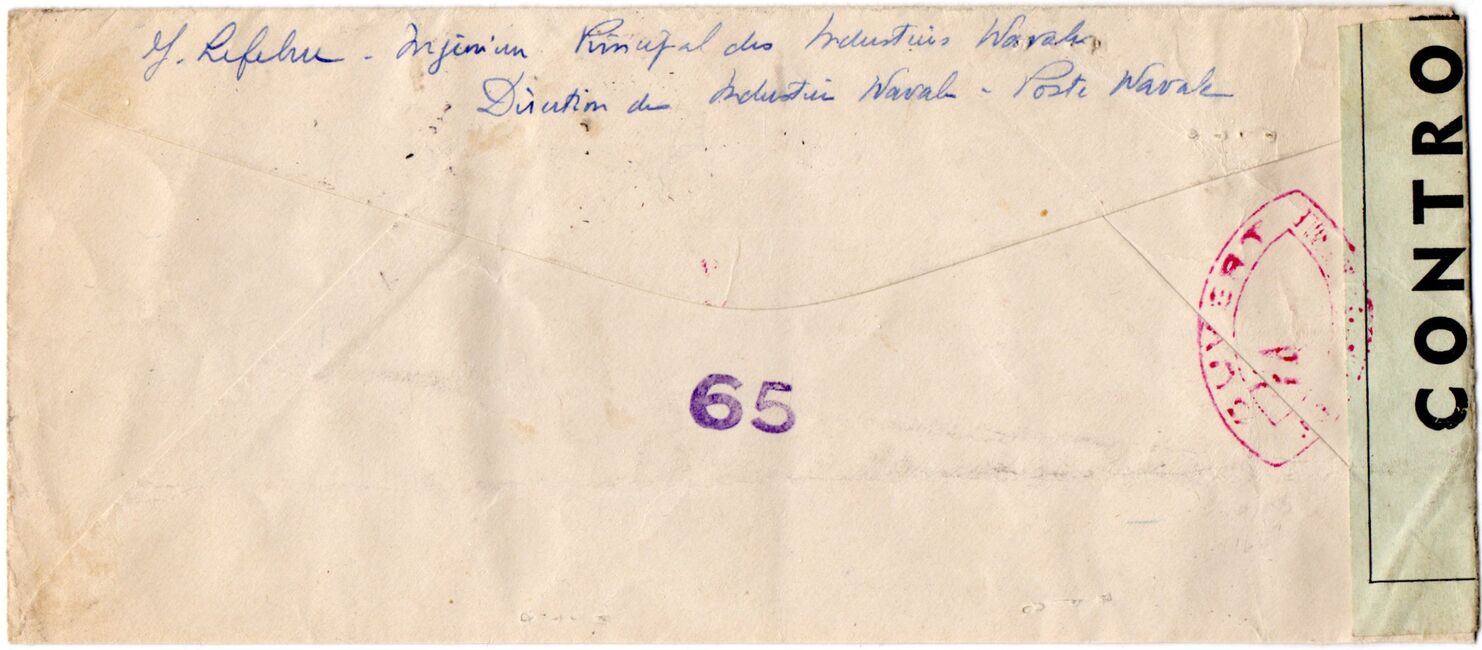 Y. Lefebvre - Ingénieur Principal des Industries Navales
Direction des Industries Navales - Poste Navale
65
OUVERT
CONTRO